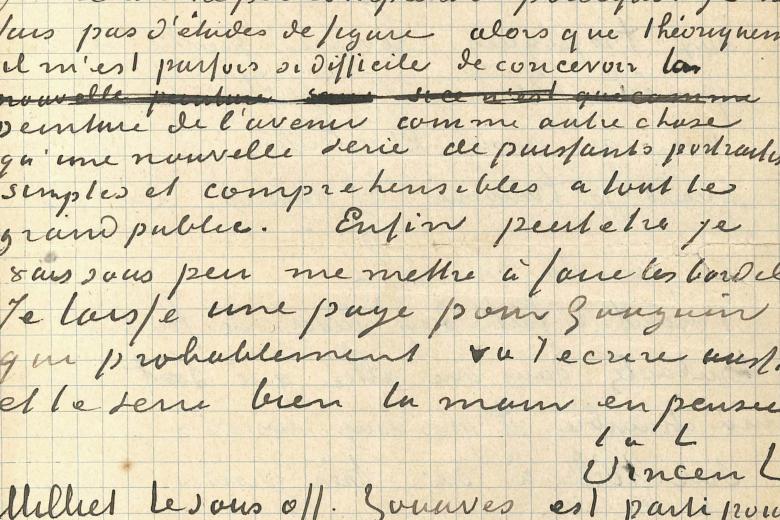 fais pas d'études de figure alors que théoriquem
il m'est parfois si difficile de concevoir la
nouvelle peinture sans si ce n'est que comme
peinture de l'avenir comme autre chose
qu'une nouvelle serie de puissants portraits
simples et comprehensibles a tout le
grand public. Enfin peutetre je
vais sous peu me mettre à faire les bordel
Je laisse une page pour Gauguin
qui probablement va t'ecrire aussi
et te serre bien la main en pensee
t à t
Vincent
Milliet le sous off. Zouaves est parti pour